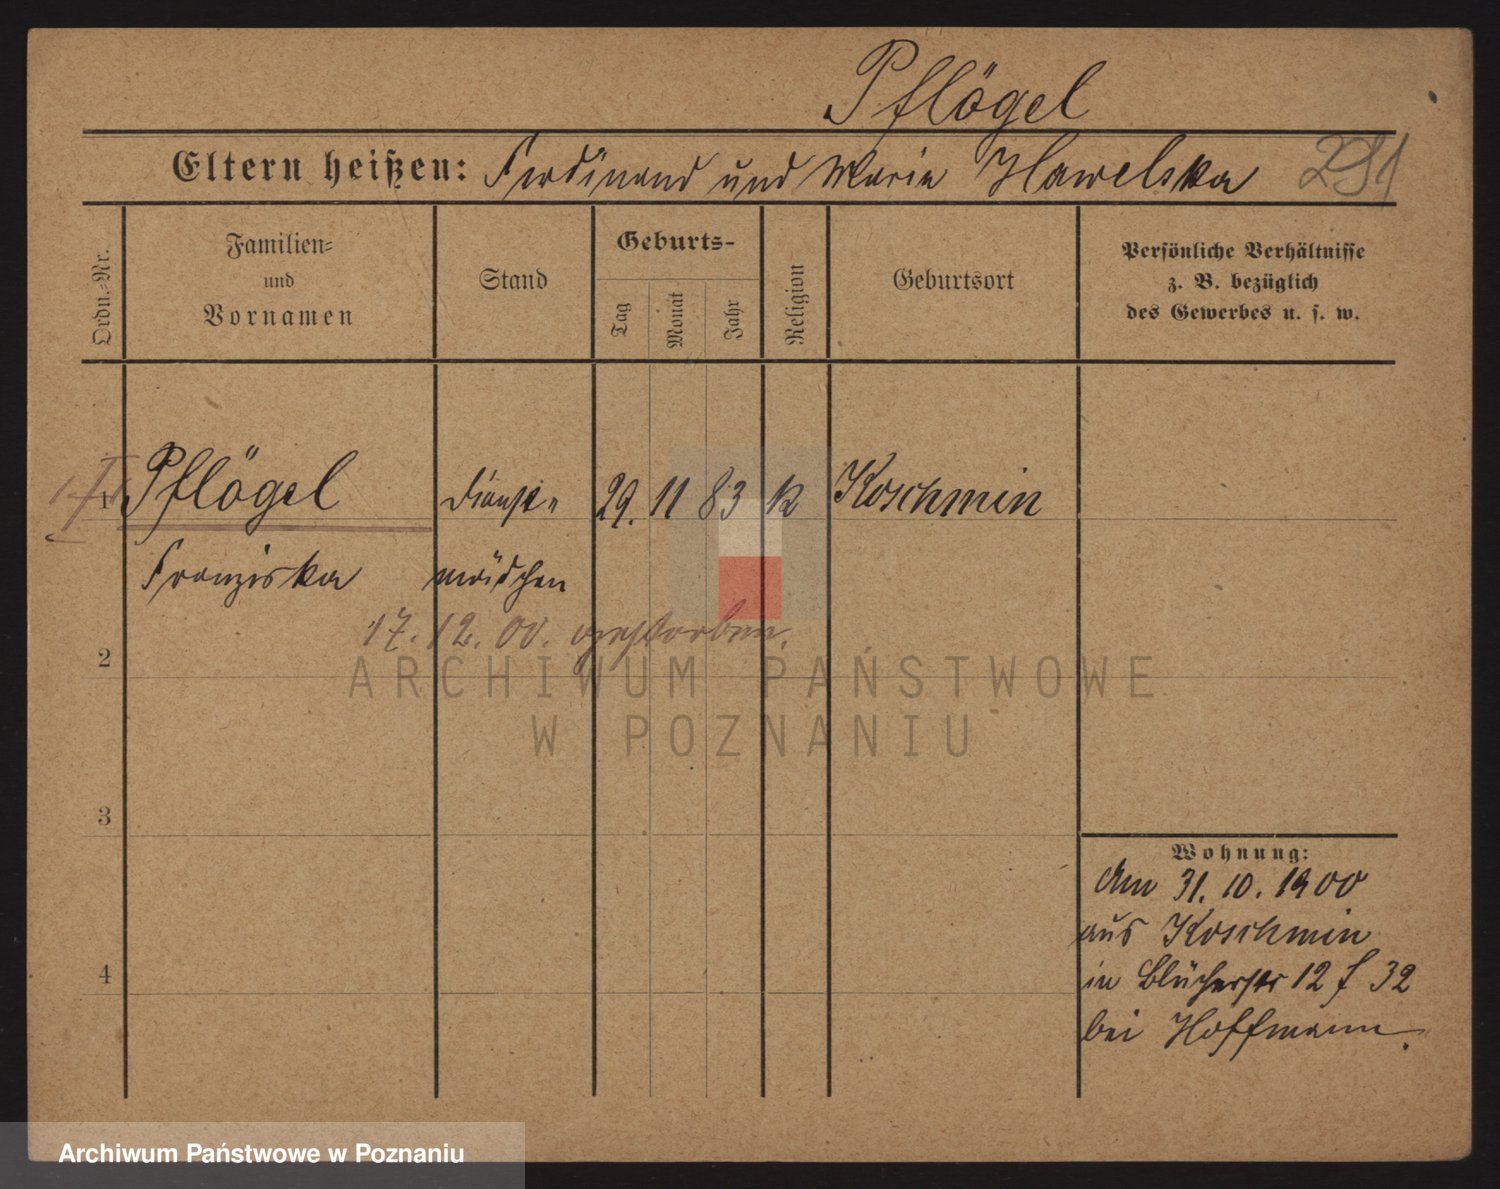 Pflögel
Eltern heißen: Ferdinand und Marie Hawelska 291
Ordn.-Nr.
Familien-
und
Vornamen
Stand
Geburts-
Tag
Monat
Jahr
Religion
Geburtsort
Persönliche Verhältnisse
z. B. bezüglich
des Gewerbes u. s. w.
1 Pflögel Dienst- 29. 11 83 k Koschmin
Franziska mädchen
17. 12. 00. gestorben.
2
ARCHIWUM PAŃSTWOWE
W POZNANIU
3
Wohnung:
Am 31. 10. 1900
aus Koschmin
4
in Blücherstr 12 f 32
bei Hoffmann.
Archiwum Państwowe w Poznaniu